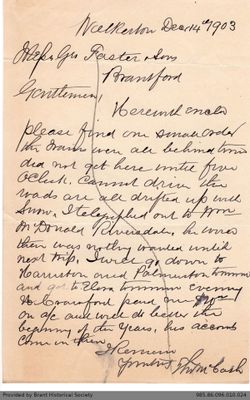 Walkerton Dec 14th 1903
Mess Geo Foster & Sons
Brantford
Gentlemen
Herewith enclo
please find one small order
the trains were all behind time
did not get here until five
OClock. Cannot drive the
roads are all drifted up with
snow. I telephoned out to Wm
McDonald Riversdale, he wired
there was nothing wanted until
next trip. I will go down to
Harriston and Palmerston tomorrow
and get to Elora tomorrow evening
Crawford paid me
on a/c and will do better the
beginning of the Year, his account
I Remain
Yours Thos McCosh
Provided by Brant Historical Society
985.86.096.010.024